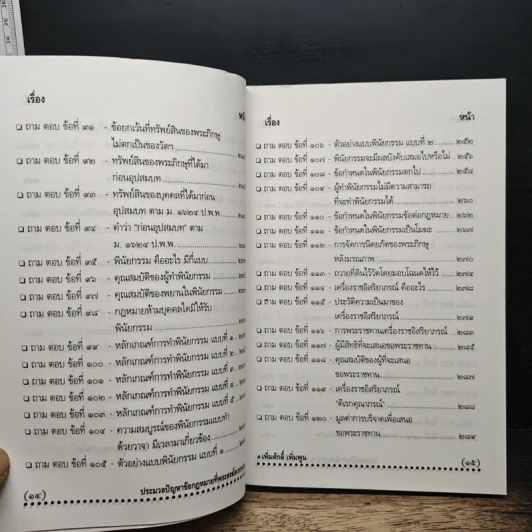 เรื่อง
❏ ถาม ตอบ ข้อที่ ๙๑ - ข้อยกเว้นที่ทรัพย์สินของพระภิกษุ
ไม่ตกเป็นของวัดฯ
❏ ถาม ตอบ ข้อที่ ๙๒ - ทรัพย์สินของพระภิกษุที่ได้มา
ก่อนอุปสมบท
❏ ถาม ตอบ ข้อที่ ๙๓ - ทรัพย์สินของบุคคลที่ได้มาก่อน
อุปสมบท ตาม ม. ๑๖๒๔ ป.พ.พ.
❏ ถาม ตอบ ข้อที่ ๙๔ - คำว่า "ก่อนอุปสมบท" ตาม
ม. ๑๖๒๔ ป.พ.พ.
❏ ถาม ตอบ ข้อที่ ๙๕ - พินัยกรรม คืออะไร มีกี่แบบ
❏ ถาม ตอบ ข้อที่ ๙๖ - คุณสมบัติของผู้ทำพินัยกรรม
❏ ถาม ตอบ ข้อที่ ๙๗ - คุณสมบัติของพยานในพินัยกรรม
❏ ถาม ตอบ ข้อที่ ๙๘ - กฎหมายห้ามบุคคลใดมิให้รับ
พินัยกรรม
❏ ถาม ตอบ ข้อที่ ๙๙ - หลักเกณฑ์การทำพินัยกรรม แบบที่ ๑
❏ ถาม ตอบ ข้อที่ ๑๐๐ - หลักเกณฑ์การทำพินัยกรรม แบบที่ ๒
❏ ถาม ตอบ ข้อที่ ๑๐๑ - หลักเกณฑ์การทำพินัยกรรม แบบที่ ๓
❏ ถาม ตอบ ข้อที่ ๑๐๒ - หลักเกณฑ์การทำพินัยกรรม แบบที่ ๔
❏ ถาม ตอบ ข้อที่ ๑๐๓ - หลักเกณฑ์การทำพินัยกรรม แบบที่ ๕
❏ ถาม ตอบ ข้อที่ ๑๐๔ - ความสมบูรณ์ของพินัยกรรมแบบทำ
ด้วยวาจา มีเวลามาเกี่ยวข้อง
❏ ถาม ตอบ ข้อที่ ๑๐๕ - ตัวอย่างแบบพินัยกรรม แบบที่ ๑
(๑๔) ประมวลปัญหาข้อกฎหมายที่พระสงฆ์
เรื่อง หน้า
❏ ถาม ตอบ ข้อที่ ๑๐๖ - ตัวอย่างแบบพินัยกรรม แบบที่ ๒ ๒๕๒
❏ ถาม ตอบ ข้อที่ ๑๐๗ - พินัยกรรมจะมีผลบังคับเสมอไปหรือไม่ ๒๕๖
❏ ถาม ตอบ ข้อที่ ๑๐๘ - ข้อกำหนดในพินัยกรรมตกไป ๒๕๘
❏ ถาม ตอบ ข้อที่ ๑๐๙ - ผู้ทำพินัยกรรมไม่มีความสามารถ
ที่จะทำพินัยกรรมได้ ๒๖๐
❏ ถาม ตอบ ข้อที่ ๑๑๐ - ข้อกำหนดในพินัยกรรมขัดต่อกฎหมาย
❏ ถาม ตอบ ข้อที่ ๑๑๑ - ข้อกำหนดในพินัยกรรมเป็นโมฆะ
❏ ถาม ตอบ ข้อที่ ๑๑๒ - การจัดการนิตยภัตของพระภิกษุ
หลังมรณภาพ ๒๗๐
❏ ถาม ตอบ ข้อที่ ๑๑๓ - ถวายที่ดินไว้วัดโดยมอบโฉนดให้ไว้
❏ ถาม ตอบ ข้อที่ ๑๑๔ - เครื่องราชอิสริยาภรณ์ คืออะไร ๒๗๘
❏ ถาม ตอบ ข้อที่ ๑๑๕ - ประวัติความเป็นมาของ
เครื่องราชอิสริยาภรณ์ ๒๗๙
❏ ถาม ตอบ ข้อที่ ๑๑๖ - การพระราชทานเครื่องราชอิสริยาภรณ์
❏ ถาม ตอบ ข้อที่ ๑๑๗ - ผู้มีสิทธิที่จะเสนอขอพระราชทาน
❏ ถาม ตอบ ข้อที่ ๑๑๘ - คุณสมบัติของผู้ที่จะเสนอ
ขอพระราชทาน
❏ ถาม ตอบ ข้อที่ ๑๑๙ - เครื่องราชอิสริยาภรณ์
"ดิเรกคุณาภรณ์" ๒๘๘
❏ ถาม ตอบ ข้อที่ ๑๒๐ - มูลค่าการบริจาคเพื่อเสนอ
ขอพระราชทาน ๒๘๙
เพิ่มศักดิ์ เพิ่มพูน (๑๕)